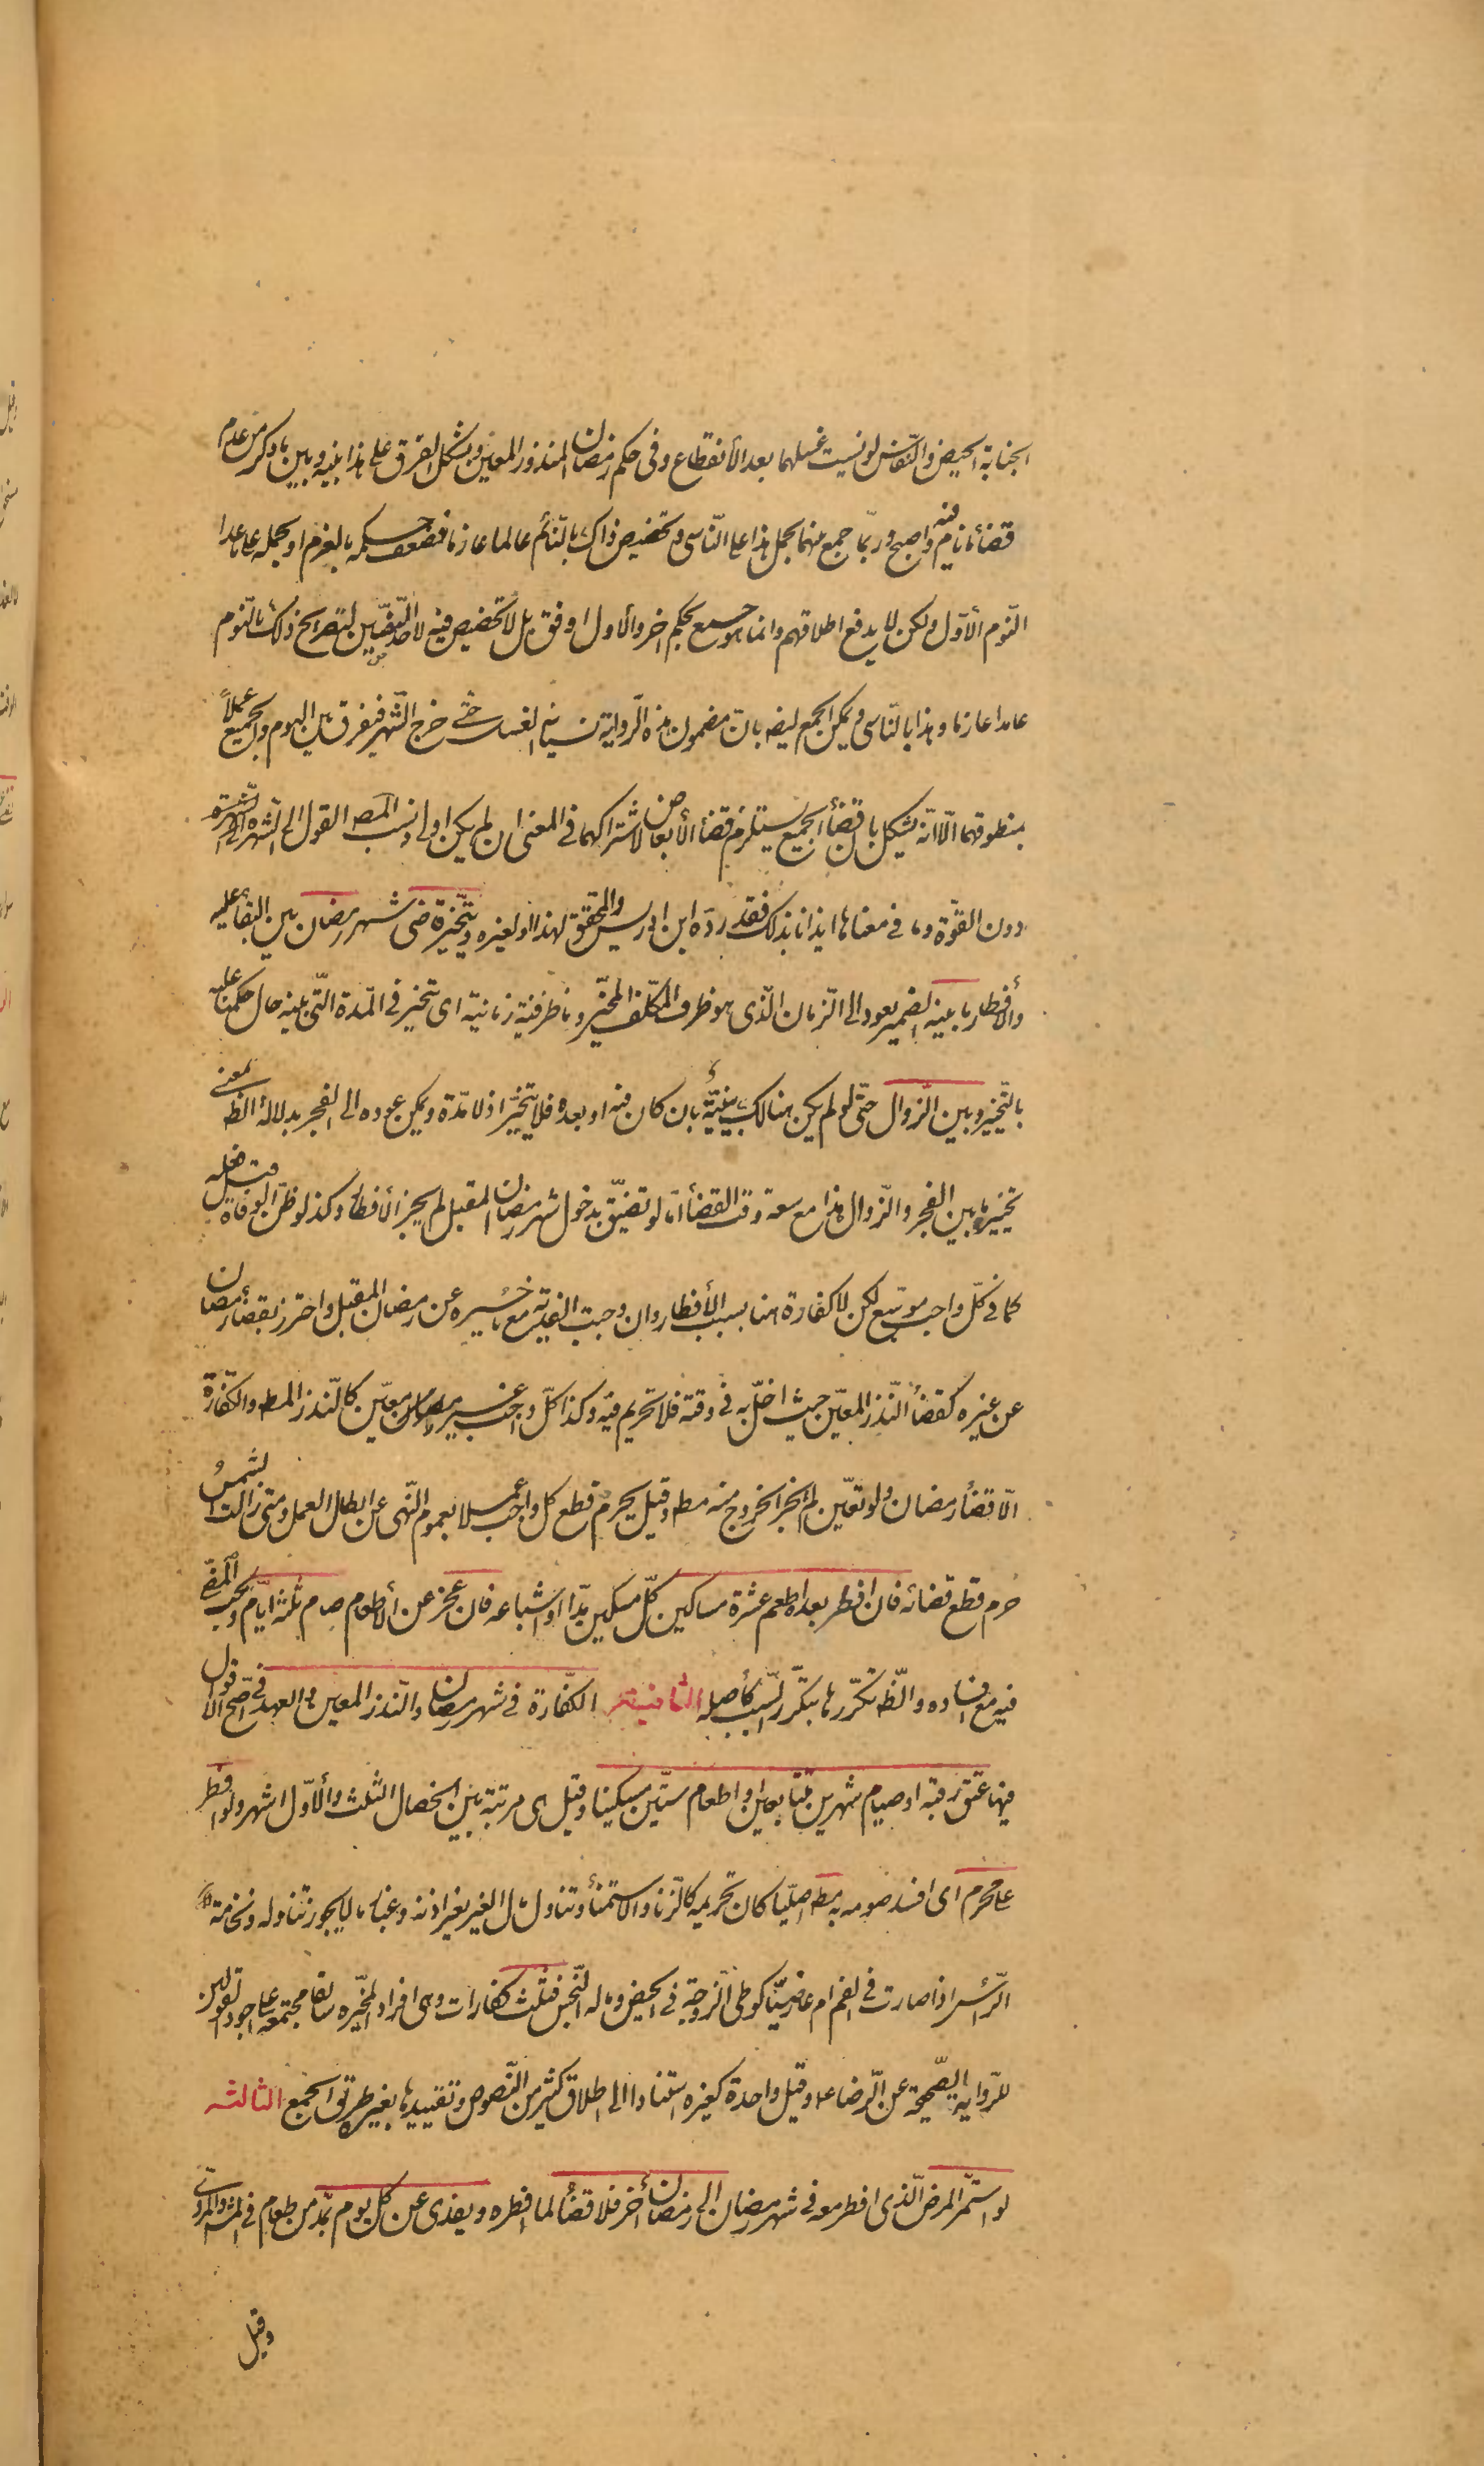 الجنابة الحيض والنّفاس لو نسيت غسلهما بعد الأنقطاع وفى حكم رمضان المنذور المعيّن ويشكل الفرق على هذا بينه وبين ما ذكر من عدم
قضأ ما نام فيه واصبح وربّما جمع بينهما بحمل هذا على النّاسى وتخصيص ذاك بالنّائم عالما عازما فضعف حكمه بالعزم او بحمله على ما عدا
النّوم الأوّل ولكن لا يدفع اطلاقهم وانما هو جمع بحكم اخر والأول اوفق بل لا تخصيص فيه لاحد النّصّين لتصريح ذلك بالنّوم
عامدا عازما وهذا بالنّاسى ويمكن الجمع ايضه بانّ مضمون هذه الرّواية نسيانه الغسل حتّى خرج الشّهر فيفرق بين اليوم والجميع عملاً
بمنطوقهما الّا انّه يشكل بان قضأ الجميع يستلزم قضأ الأبعاض لاشتراكهما فى المعنى ان لم يكن اولى ونسب المص القول الى الشهرة
دون القوّة وما فى معناها ايذانا بذلك فقد ردّه ابن ادريس والمحقق لهذا او لغيره ويتخيّر قاضى شهر رمضان بين البقأ عليه
والأفطار ما بينه الضمير يعود الى الزّمان الّذى هو ظرف المكلّف المخيّر وما ظرفية زمانية اى يتخيّر فى المدّة الّتى بينه حال حكمنا عليه
بالتّخيير وبين الزّوال حتّى لو لم يكن هنالك بينيّة بان كان فيه او بعده فلا يتخيّر اذ لا مدّة ويمكن عوده الى الفجر بدلالة الظ بمعنى
تخييره ما بين الفجر والزّوال هذا مع سعة وقت القضأ امّا لو تضيّق بدخول شهر رمضان المقبل لم يجز الأفطار وكذا لو ظنّ الوفاة قبل فعله
كما فى كلّ واجب موسّع لكن لا كفارة هنا بسبب الأفطار وان وجبت الفدية مع تأخيره عن رمضان المقبل واحترز بقضأ رمضان
عن غيره كقضأ النّذر المعيّن حيث اخلّ به فى وقته فلا تحريم فيه وكذا كلّ واجب غير معيّن كالنّذر المط والكفّارة
الّا قضأ رمضان ولو تعيّن لم يجز الخروج منه مط وقيل يحرم قطع كل واجب عملا بعموم النّهى عن ابطال العمل ومتى زالت الشّمس
حرم قطع قضائه فان افطر بعده اطعم عشرة مساكين كلّ مسكين مدّا او اشباعه فان عجز عن الأطعام صام ثلثة ايّام ويجب المضىّ
فيه مع افساده والظ تكرّرها بتكرّر السّبب كأصله الثانية الكفّارة فى شهر رمضان والنّذر المعين والعهد فى اصّح الأقوال
فيهما عتق رقبة او صيام شهرين متتابعين او اطعام ستّين مسكينا وقيل هى مرتبة بين الخصال الثلث والأوّل اشهر ولو افطر
على محرم اى افسد صومه به مط اصليّا كان تحريمه كالزّنا والأستمنأ وتناول مال الغير بغير اذنه وغبار ما لا يجوز تناوله ونخامة
الرّأس اذا صارت فى الفم ام عارضيّا كوطى الزّوجة فى الحيض وماله النّجس فثلث كفارات وهى افراد المخيّره سابقا مجتمعة على اجود القولين
للرّواية الصّحيحة عن الرّضا ع وقيل واحدة كغيره استنادا الى اطلاق كثير من النّصوص وتقييدها بغيره طريق الجمع الثالثه
لو استمّر المرض الّذى افطر معه فى شهر رمضان الى رمضان أخر فلا قضأ لما افطره ويفدى عن كل يوم بمدّ من طعام فى المش والمروىّ
وقيل